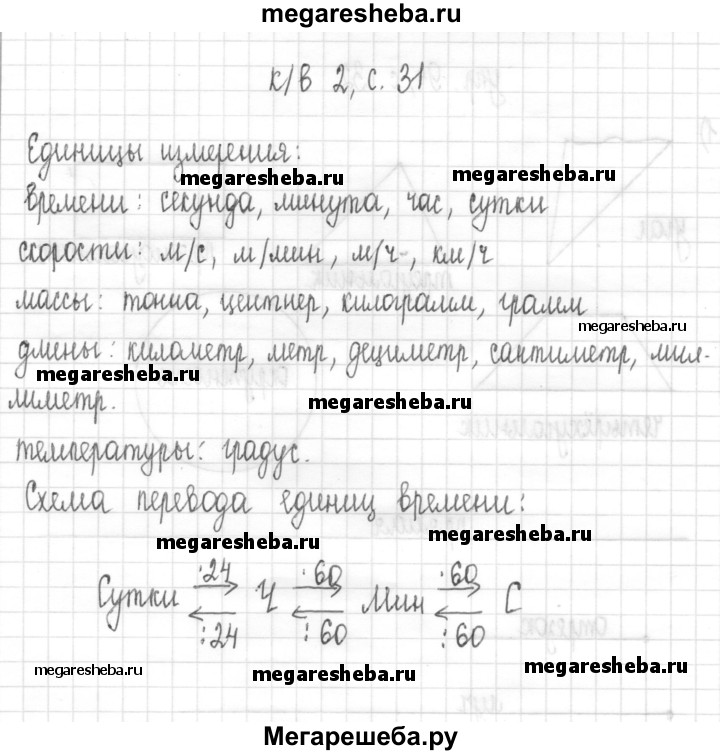 megaresheba.ru
к/в 2, с. 31
Единицы измерения:
megaresheba.ru megaresheba.ru
времени: секунда, минута, час, сутки
скорости: м/с, м/мин, м/ч, км/ч
массы: тонна, центнер, килограмм, грамм
megaresheba.ru
длины: километр, метр, дециметр, сантиметр, мил-
megaresheba.ru
лиметр.
megaresheba.ru
температуры: градус.
Схема перевода единиц времени:
megaresheba.ru megaresheba.ru
·24 ·60 ·60
Сутки Ч Мин С
:24 :60 :60
megaresheba.ru megaresheba.ru megaresheba.ru
Мегарешеба.ру